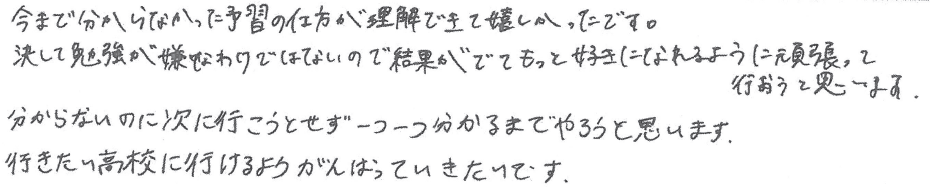 今まで分からなかった予習の仕方が理解できて嬉しかったです。
決して勉強が嫌なわけではないので結果がでてもっと好きになれるように頑張って
行おうと思います.
分からないのに次に行こうとせず一つ一つ分かるまでやろうと思います.
行きたい高校に行けるようがんばっていきたいです.